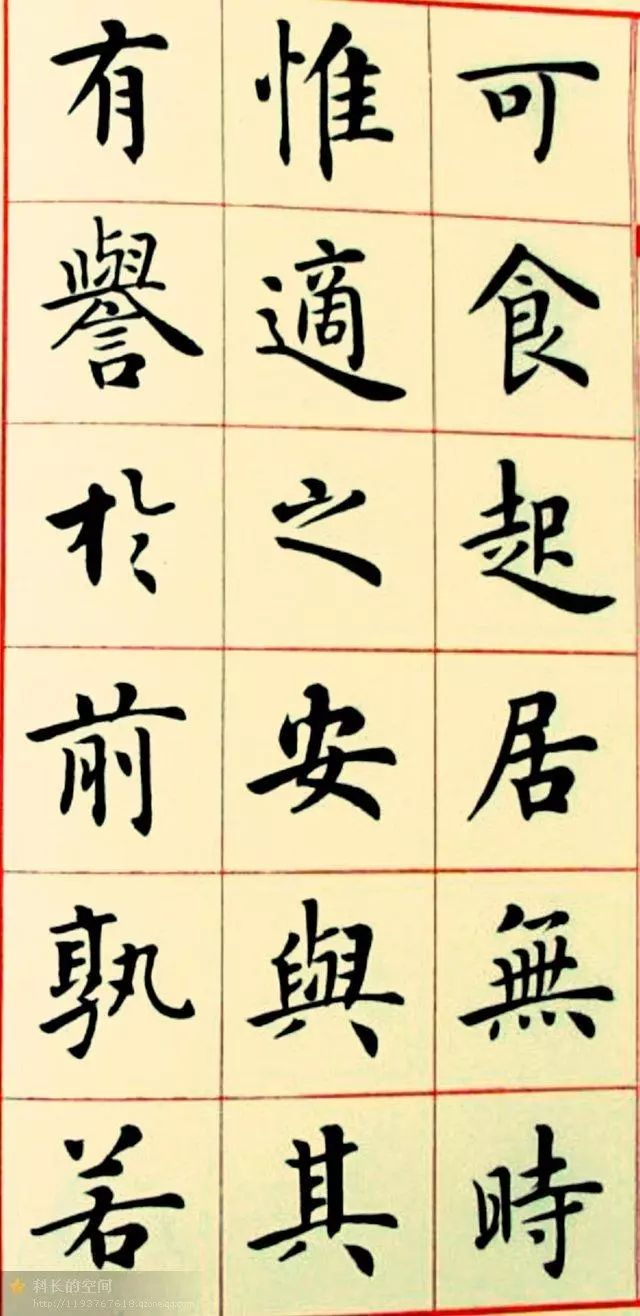 可食起居無時
惟適之安與其
有譽於前孰若
科长的空间
http://1193767618.qzone.qq.com